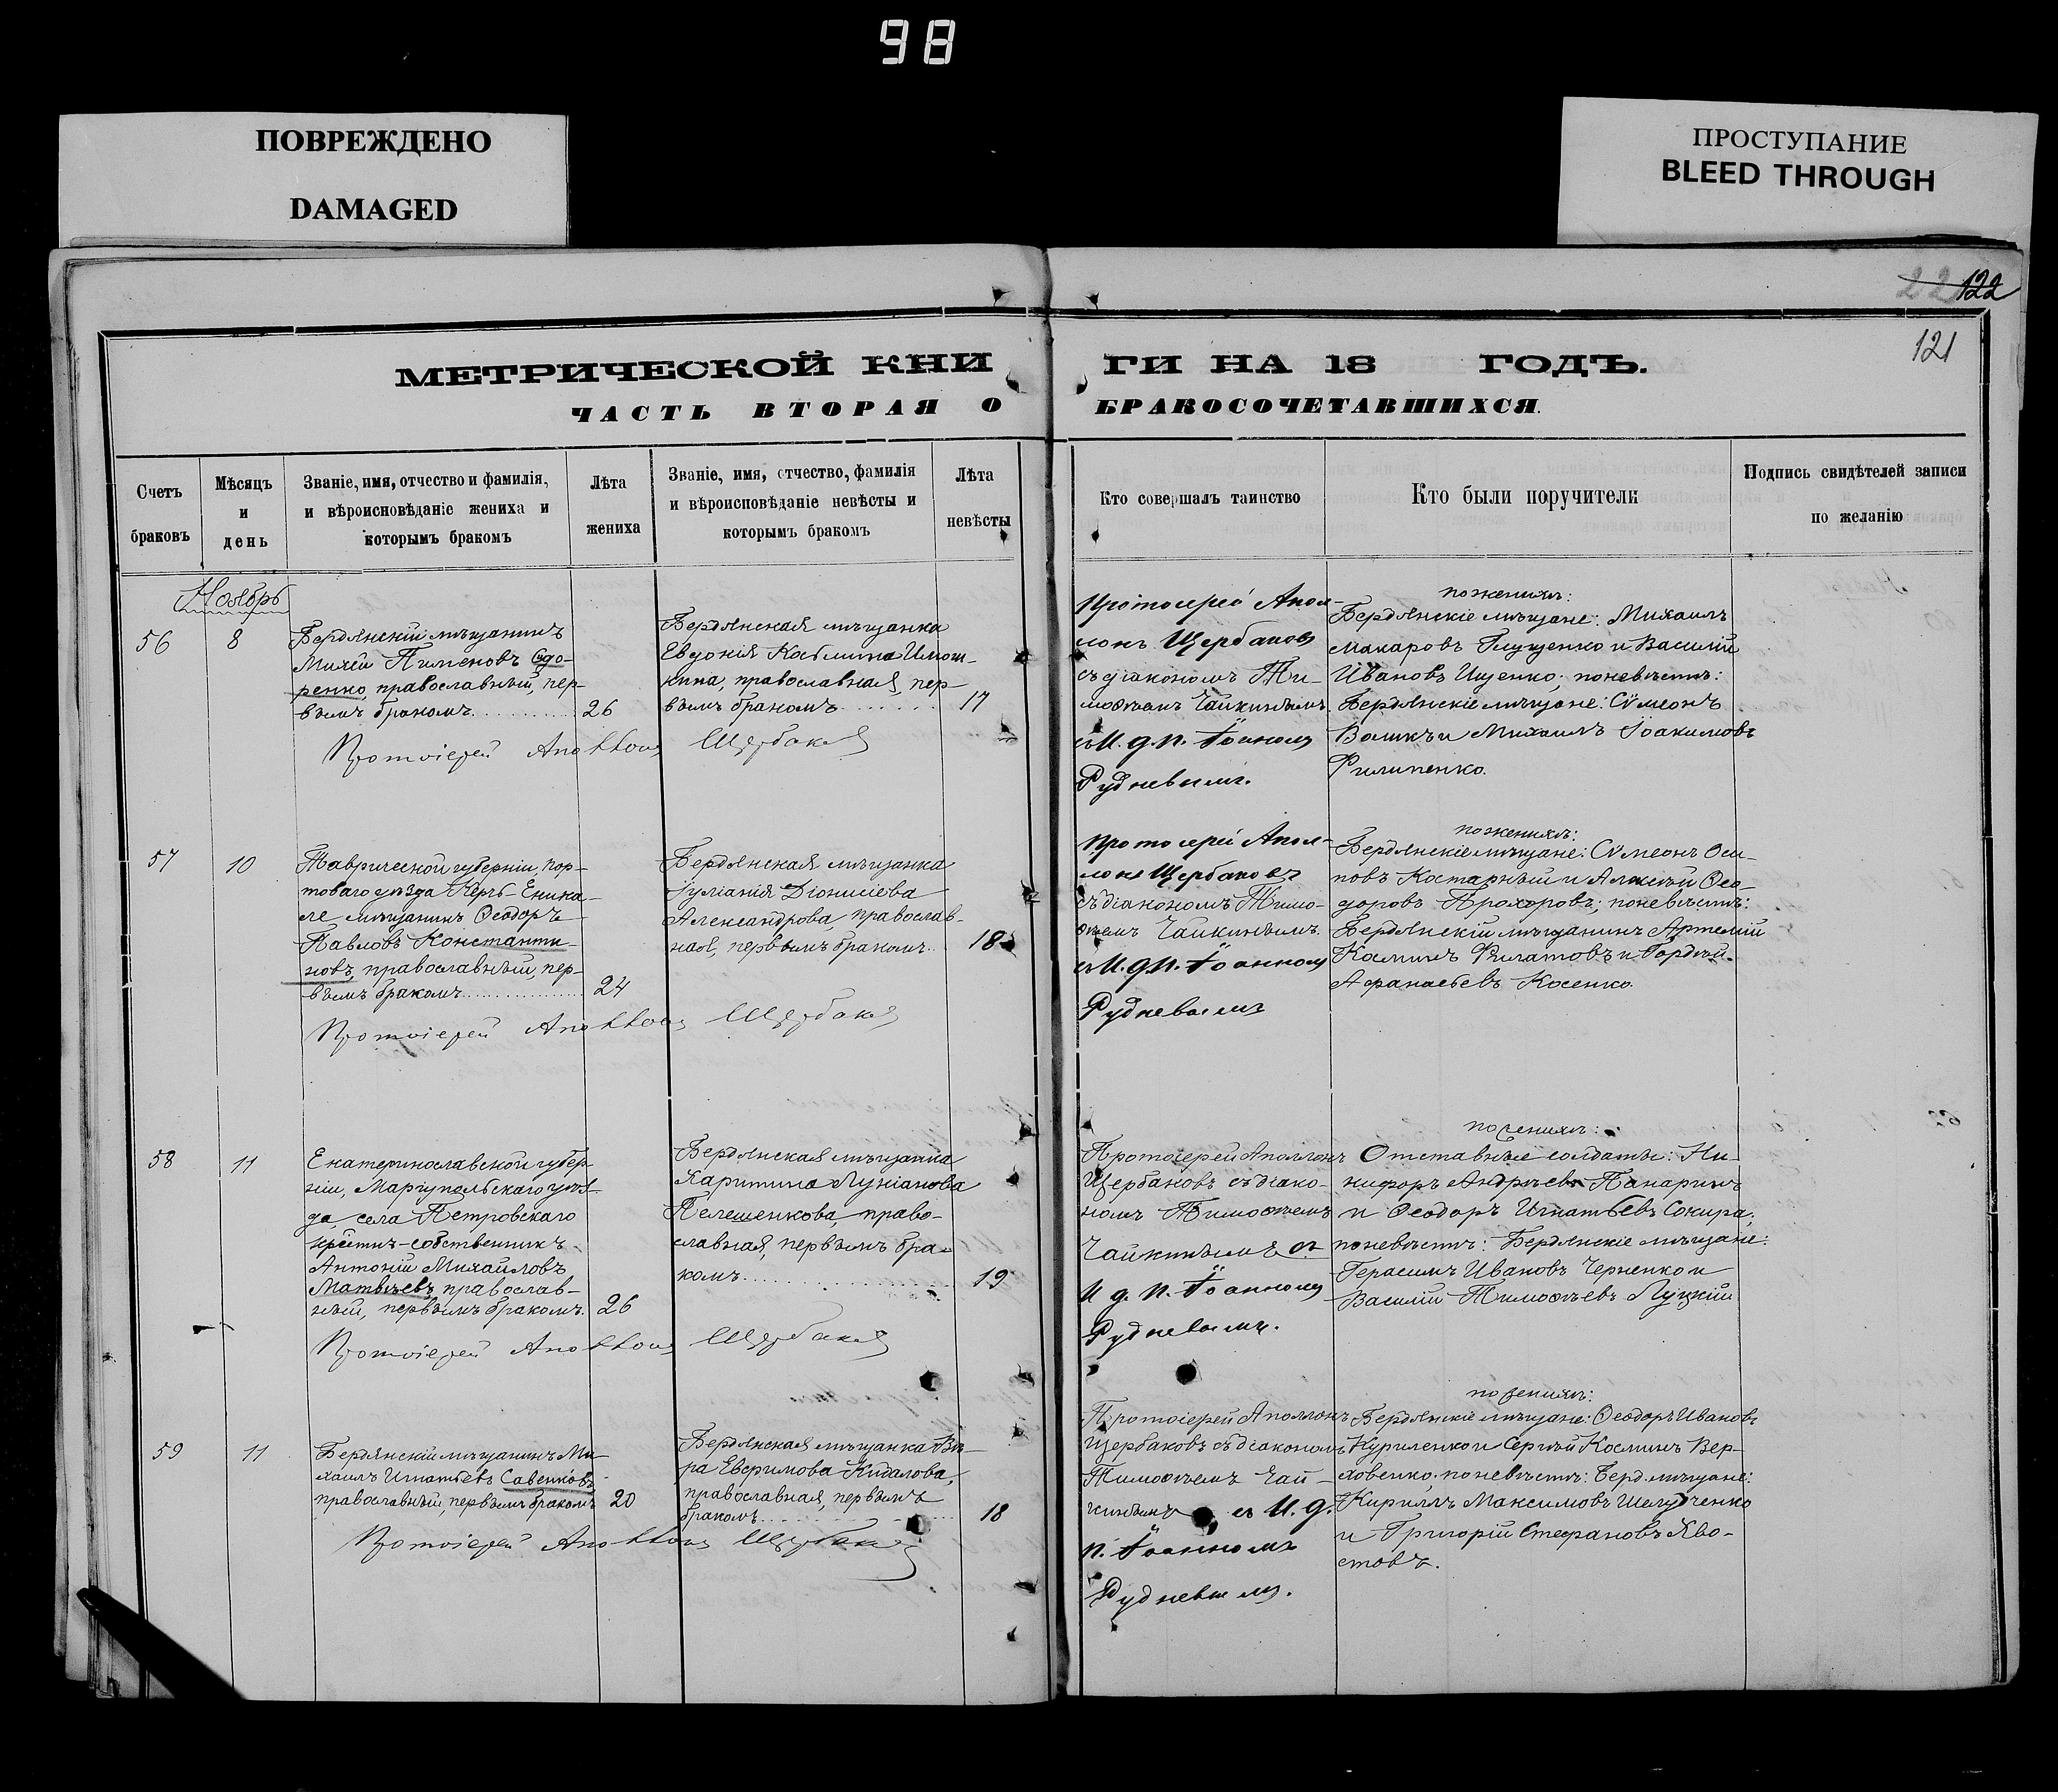 98
ПОВРЕЖДЕНО
DAMAGED
ПРОСТУПАНИЕ
BLEED THROUGH
122
121
МЕТРИЧЕСКОЙ КНИ ГИ НА 18 ГОДЪ.
ЧАСТЬ ВТОРАЯ О БРАКОСОЧЕТАВШИХСЯ.
Счетъ
браковъ
Мѣсяцъ
и
день
Званіе, имя, отчество и фамилія,
и вѣроисповѣданіе жениха и
которымъ бракомъ
Лѣта
жениха
Званіе, имя, отчество, фамилія
и вѣроисповѣданіе невѣсты и
которымъ бракомъ
Лѣта
невѣсты
Кто совершалъ таинство
Кто были поручители
Подпись свидѣтелей записи
по желанію
Ноябрь
56
8
Бердянскій мѣщанинъ
Пименовъ Сидо-
ренко, православный, пер-
вымъ бракомъ
26
Бердянская мѣщанка
Евдокія Козьмина
православная, пер-
вымъ бракомъ
17
Протоіерей Аполлонъ Щербаковъ
Протоіерей Апол-
лонъ Щербаковъ
съ діакономъ Ти-
моѳеемъ Чайкинымъ
съ И. д. п. Іоанномъ
Рудневымъ.
по женихѣ:
Бердянскіе мѣщане: Михаилъ
Макаровъ Глущенко и Василій
Ивановъ Ищенко; по невѣстѣ:
Бердянскіе мѣщане: Сѵмеонъ
Воликъ и Михаилъ Іоакимовъ
Филипенко.
57
10
Таврической губерніи, пор-
товаго города Керчь Еника-
ле мѣщанинъ Ѳеодоръ
Павловъ Константи-
новъ, православный, пер-
вымъ бракомъ
24
Бердянская мѣщанка
Іуліанія Діонисіева
Александрова, православ-
ная, первымъ бракомъ
18
Протоіерей Аполлонъ Щербаковъ
Протоіерей Апол-
лонъ Щербаковъ
съ діакономъ Тимо-
ѳеемъ Чайкинымъ
съ И. д. п. Іоанномъ
Рудневымъ
по женихѣ:
Бердянскіе мѣщане: Сѵмеонъ Оси-
повъ Костарный и Алексѣй Ѳео-
доровъ Прохоровъ; по невѣстѣ:
Бердянскій мѣщанинъ Артемій
Косминъ Филатовъ и Гордѣй
Афанасьевъ Косенко.
58
11
Екатеринославской губер-
ніи, Маріупольскаго уѣз-
да, села Петровскаго
крестн-собственникъ
Антоній Михайловъ
Матвѣевъ, православ-
ный, первымъ бракомъ.
26
Бердянская мѣщанка
Харитина Лукіанова
Пелешенкова, право-
славная, первымъ бра-
комъ
19
Протоіерей Аполлонъ Щербаковъ
Протоіерей Аполлонъ
Щербаковъ съ діако-
номъ Тимоѳеемъ
Чайкинымъ съ
И. д. п. Іоанномъ
Рудневымъ.
по женихѣ:
Отставные солдаты: Ни-
кифоръ Андреевъ Панаринъ
и Ѳеодоръ Игнатьевъ Сокира;
по невѣстѣ: Бердянскіе мѣщане:
Герасимъ Ивановъ Черненко и
Василій Тимоѳеевъ Луцкій
59
11
Бердянскій мѣщанинъ Ми-
хаилъ Игнатьевъ Савенковъ
православный, первымъ бракомъ
20
Бердянская мѣщанка Вѣ-
ра Евфимова Кидалова,
православная, первымъ
бракомъ
18
Протоіерей Аполлонъ Щербаковъ
Протоіерей Аполлонъ
Щербаковъ съ діакономъ
Тимоѳеемъ Чай-
кинымъ съ И. д.
п. Іоанномъ
Рудневымъ.
по женихѣ:
Бердянскіе мѣщане: Ѳеодоръ Ивановъ
Куриленко и Сергѣй Косминъ Вер-
ховенко; по невѣстѣ: Берд. мѣщане:
Кириллъ Максимовъ Шелудченко
и Григорій Стефановъ Хво-
стовъ.